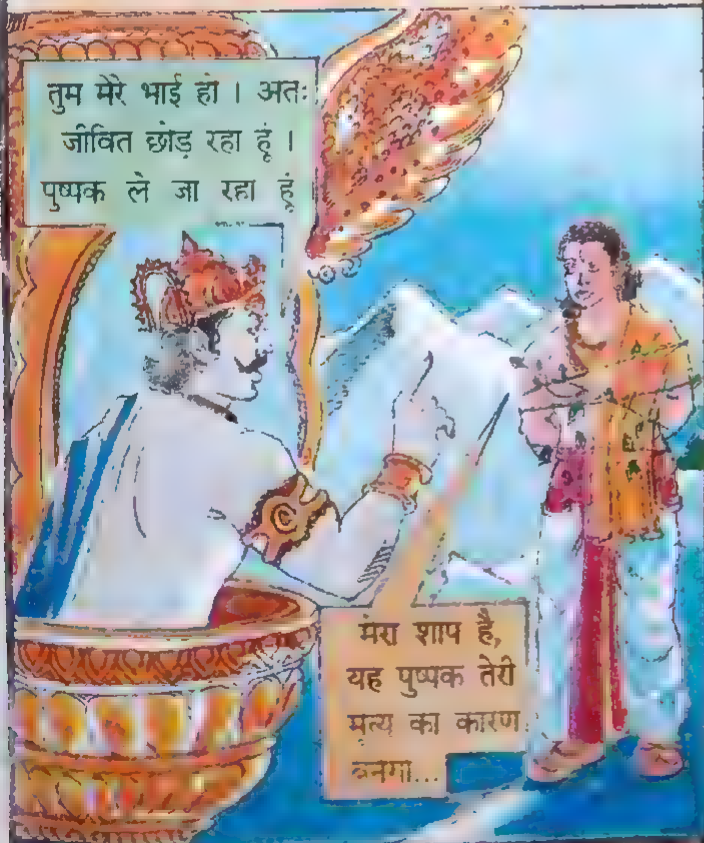 तुम मेरे भाई हो । अतः
जीवित छोड़ रहा हूं ।
पुष्पक ले जा रहा हूं
मेरा शाप है,
यह पुष्पक तेरी
मृत्यु का कारण
बनेगा...